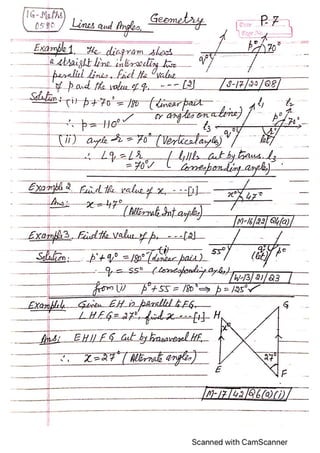 IG-Maths
0580
Lines and Angles
Geometry
P.7
Example 1. The diagram shows
a straight line intersecting two
parallel lines. Find the value
of p and the value of q. --- [2]
p° 70°
q°
S-17/22/Q8
Solution: (i) p + 70° = 180 (linear pair
or angles on a line)
∴ p = 110°
l1 l2
l3
p° 70°
q°
(ii) angle r = 70° (Vertical angles)
∴ ∠q = ∠r { l1 || l2 cut by trans. l3
= 70° Corresponding angle)
Example 2 Find the value of x, ---[1]
x° 47°
Ans: x = 47°
(Alternate Int. angles)
M-16/22/Q4(a)
Example 3. Find the value of p, ---[2]
55° q° p°
(let)
Solution: p° + q° = 180° (linear pairs) (i)
q = 55° (corresponding angles)
W-13/21/Q3
from (i) p° + 55 = 180° ⇒ p = 125°
Example 4. Given EH is parallel to FG.
∠HFG = 27°, find x ---[1]
Ans: EH || FG cut by transversal HF.
∴ x = 27° (Alternate angles)
H G
x°
27°
E F
M-17/42/Q6(a)(i)
Scanned with CamScanner